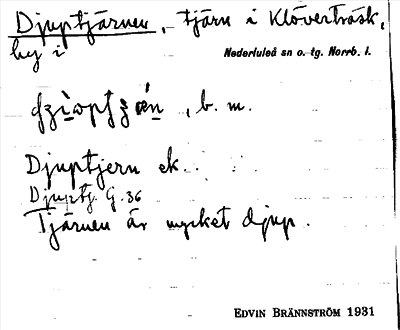 Djuptjärnen, tjärn i Klöverträsk,
by i Nederluleå sn o. tg. Norrb. l.
, b. m.
Djuptjern ek.
Djuptj. G. 36
Tjärnen är mycket djup.
EDVIN BRÄNNSTRÖM 1931